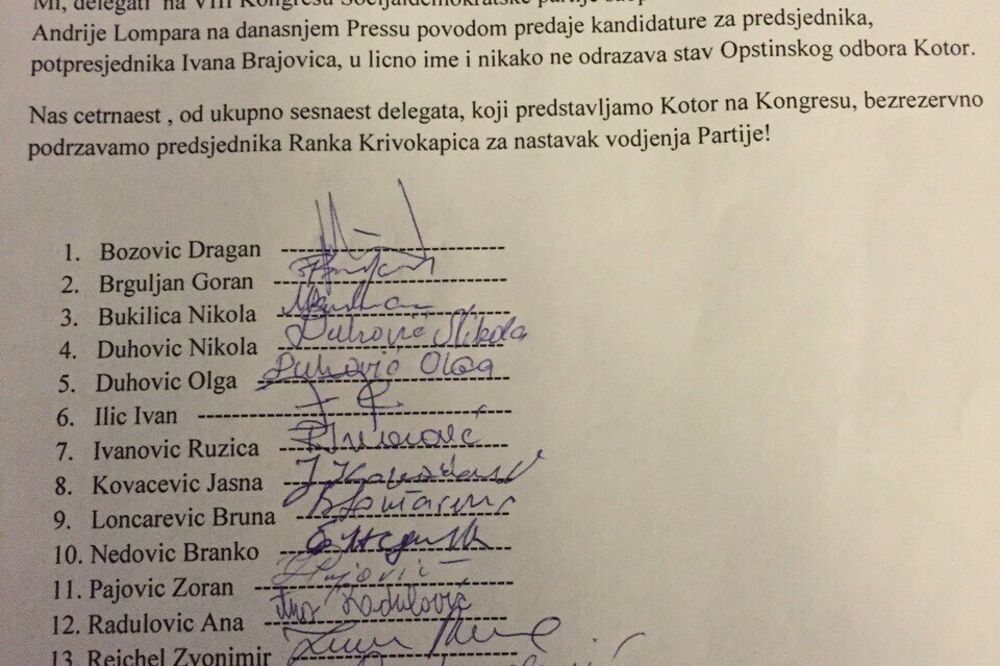 Mi, delegati na VIII Kongresu Socijaldemokratske partije
Andrije Lompara na danasnjem Pressu povodom predaje kandidature za predsjednika,
potpresjednika Ivana Brajovica, u licno ime i nikako ne odrazava stav Opstinskog odbora Kotor.
Nas cetrnaest , od ukupno sesnaest delegata, koji predstavljamo Kotor na Kongresu, bezrezervno
podrzavamo predsjednika Ranka Krivokapica za nastavak vodjenja Partije!
1. Bozovic Dragan
2. Brguljan Goran
3. Bukilica Nikola
4. Duhovic Nikola Duhović Nikola
5. Duhovic Olga Duhović Olga
6. Ilic Ivan
7. Ivanovic Ruzica
8. Kovacevic Jasna
9. Loncarevic Bruna
10. Nedovic Branko
11. Pajovic Zoran
12. Radulovic Ana Ana Radulović
13. Reichel Zvonimir